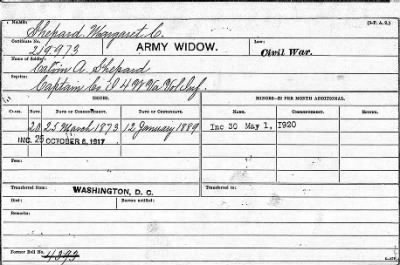 NAME: (3-P. A. G.)
Shepard, Margaret C.
Certificate No. Law:
219973 ARMY WIDOW. Civil War.
Name of Soldier:
Calvin A. Shepard
Service:
Captain Co I 4 W Va Vol Inf.
ISSUES. MINORS—$2 PER MONTH ADDITIONAL.
CLASS. RATE. DATE OF COMMENCEMENT. DATE OF CERTIFICATE. NAME. COMMENCEMENT. ENDING.
20 25 March 1873 12 January 1889 Inc 30 May 1, 1920
INC. 25 OCTOBER 6, 1917
Transferred from: WASHINGTON, D. C. Transferred to:
Died: Bureau notified:
Remarks:
Former Roll No. 4393